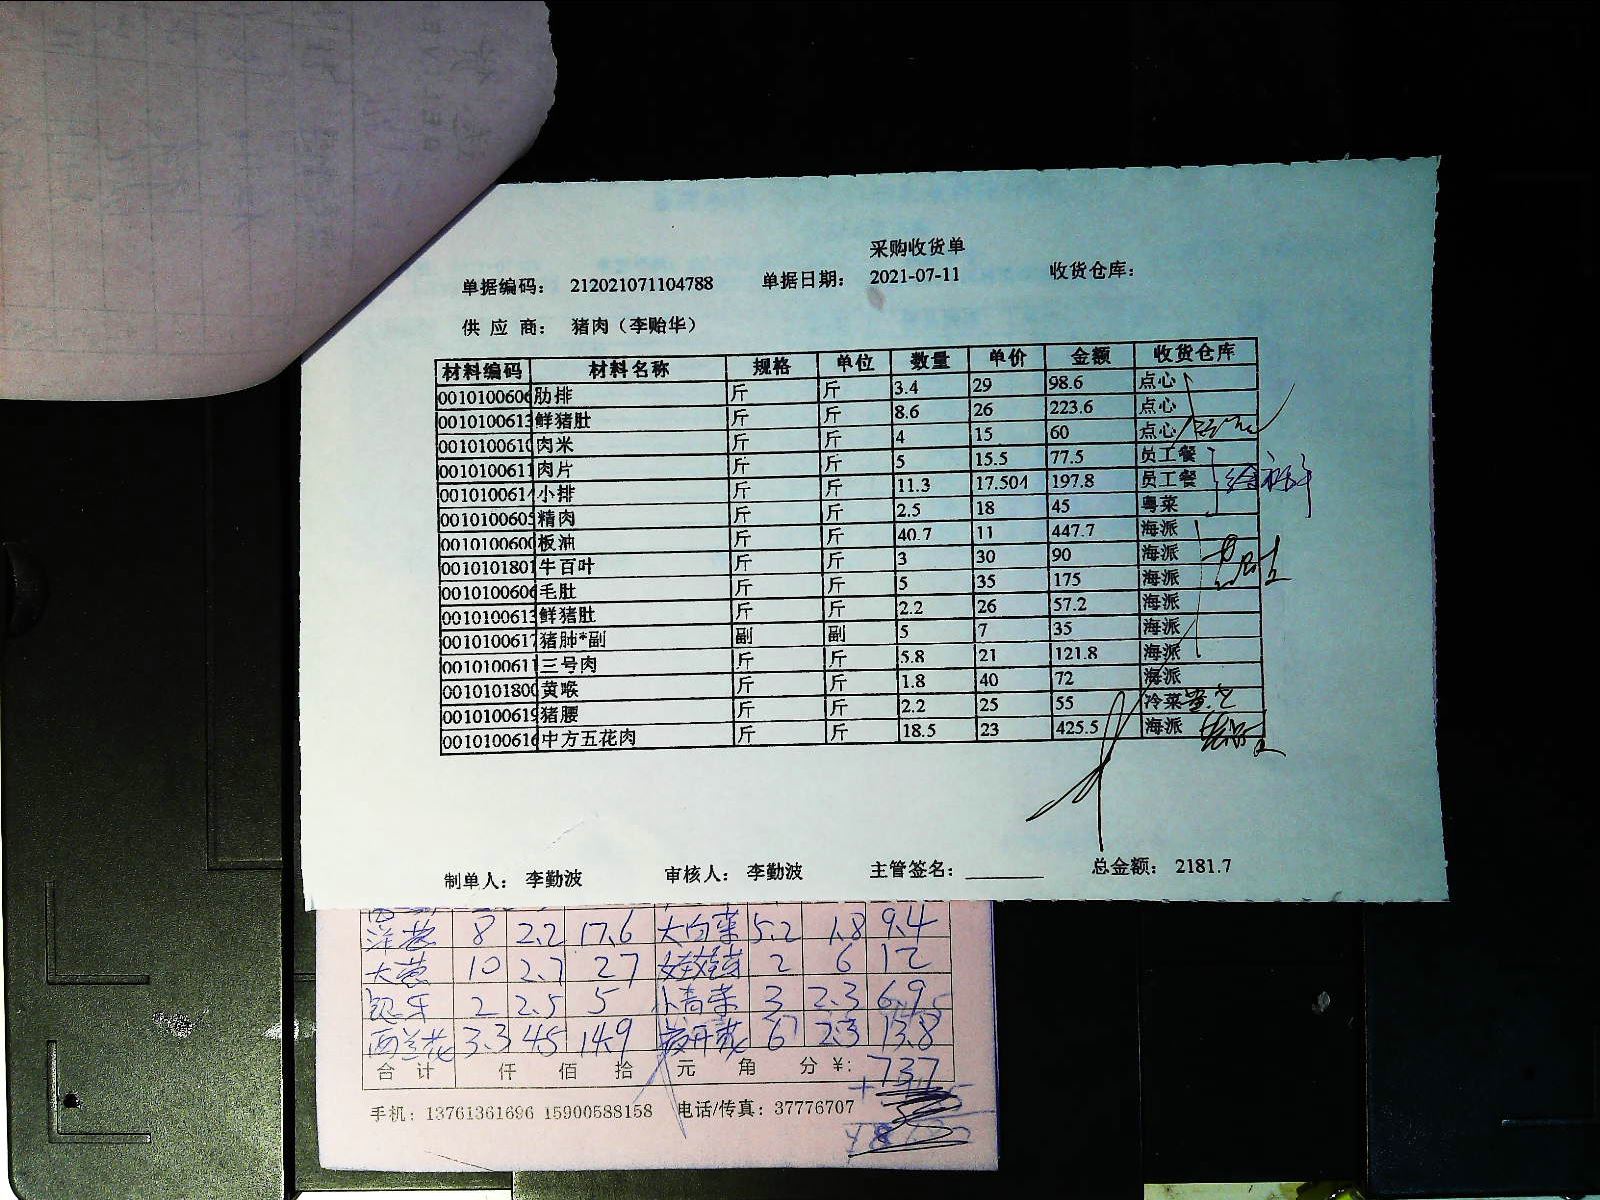 采购收货单
单据编码： 212021071104788 单据日期： 2021-07-11 收货仓库：
供 应 商： 猪肉（李贻华）
材料编码 材料名称 规格 单位 数量 单价 金额 收货仓库
0010100606 肋排 斤 斤 3.4 29 98.6 点心
0010100613 鲜猪肚 斤 斤 8.6 26 223.6 点心
0010100610 肉米 斤 斤 4 15 60 点心
0010100611 肉片 斤 斤 5 15.5 77.5 员工餐
001010061 小排 斤 斤 11.3 17.504 197.8 员工餐
0010100605 精肉 斤 斤 2.5 18 45 粤菜
0010100600 板油 斤 斤 40.7 11 447.7 海派
0010101801 牛百叶 斤 斤 3 30 90 海派
0010100606 毛肚 斤 斤 5 35 175 海派
0010100613 鲜猪肚 斤 斤 2.2 26 57.2 海派
0010100617 猪肺*副 副 副 5 7 35 海派
0010100611 三号肉 斤 斤 5.8 21 121.8 海派
0010101800 黄喉 斤 斤 1.8 40 72 海派
0010100619 猪腰 斤 斤 2.2 25 55 冷菜
0010100616 中方五花肉 斤 斤 18.5 23 425.5 海派
制单人： 李勤波 审核人： 李勤波 主管签名： 总金额： 2181.7
洋葱 8 2.2 17.6 大白菜 5.2 1.8 9.4
大葱 10 2.7 27 娃娃菜 2 6 12
银牙 2 2.5 5 小青菜 3 2.3 6.9
西兰花 3.3 4.5 14.9 6 2.3 13.8
合 计 仟 佰 拾 元 角 分 ¥: 737
手机：13761361696 15900588158 电话/传真：37776707